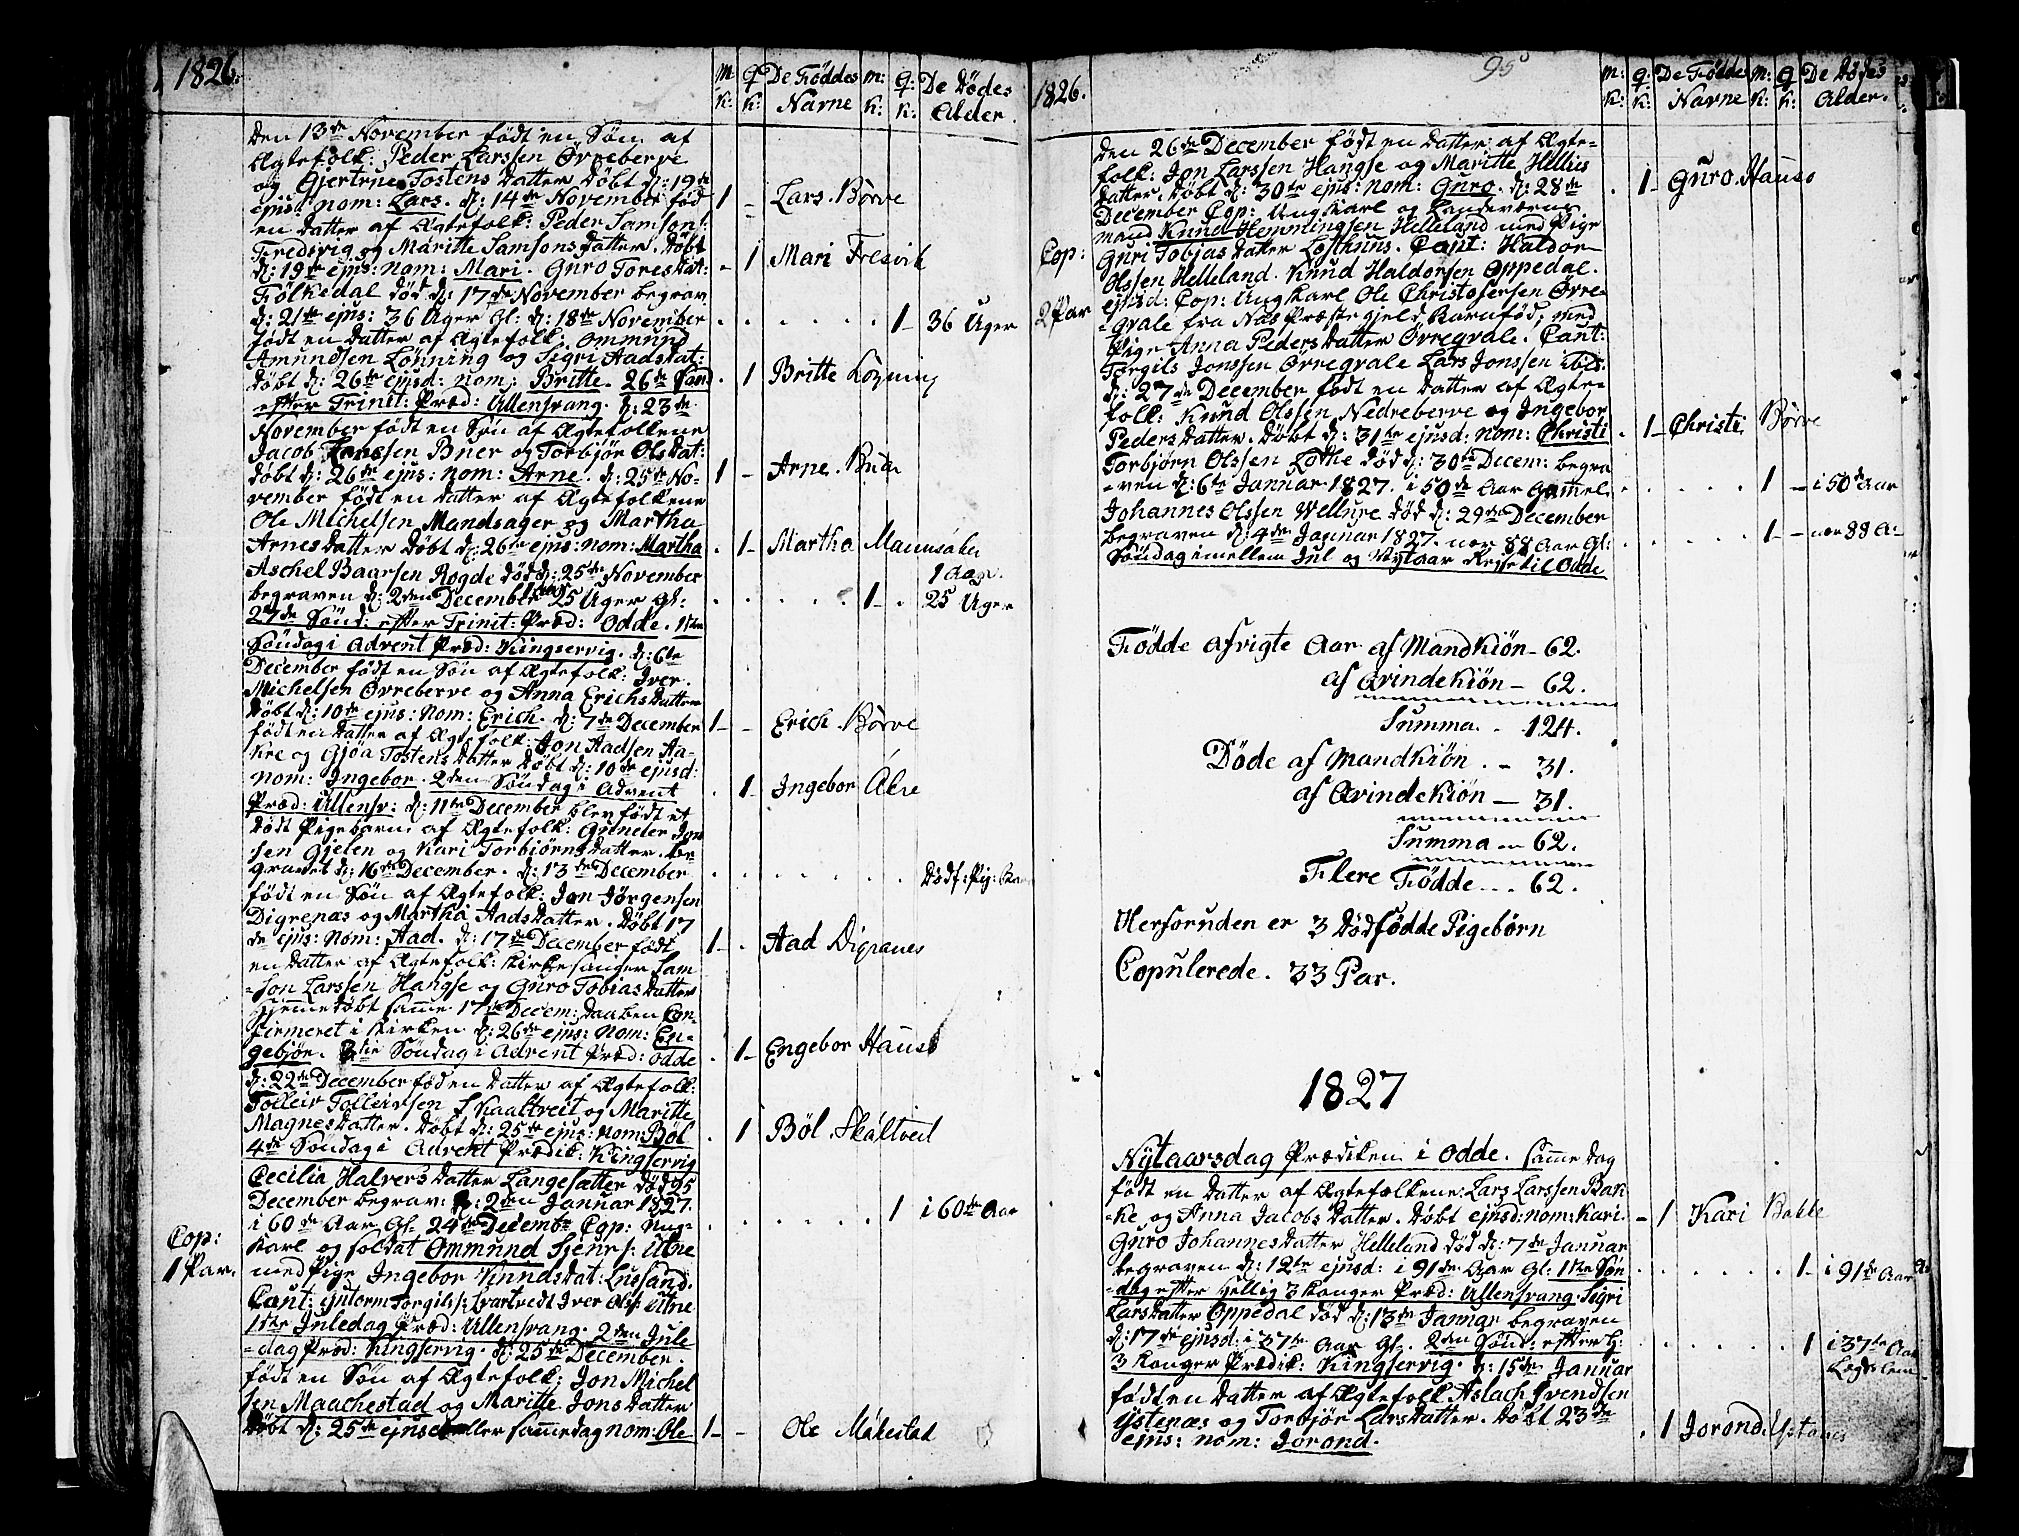 1826.
M: K:
Q: K:
De Föddes Navne
m: K:
Q: K:
De Dödes Alder.
Den 13de November födt en Sön af
Ægtefolk: Peder Larssen Övreberve
og Gjertrue Tostens Datter Döbt d: 19de
ejus: nom: Lars. d: 14de November föd
1 - Lars. Börve
en Datter af Ægtefolk: Peder Samsons:
Fredsvig og Maritte Samsons Datter. Döbt
d: 19de ejus: nom: Mari. Guro Tores Dat:
- 1 Mari Fresvik
Folkedal död d: 17de November begrav.
d: 21de ejus: 36 Uger Gl: d: 18de November
1 - 36 Uger
födt en Datter af Ægtefolk: Ommund
Amundsen Lönning og Sigri Aads Dat:
döbt d: 26de ejusd: nom: Britte. 26de Sönd
. 1 Britte Löyning
efter Trinit: Præd: Ullensvang. d: 23de
November födt en Sön af Ægtefolkene
Jacob Larssen Buer og Torbjör Ols Dat:
döbt d: 26de ejus: nom: Arne. d: 25de No-
1 - Arne. Buar
vember födt en Datter af Ægtefolkene
Ole Michelsen Mandsager og Martha
Arnes Datter Döbt d: 26de ejus: nom: Martha
. 1 - Martha Mannsåker
Aschel Baarsen Rogde död d: 25de November
begraven d: 2den December 25 Uger Gl:
1 - . 1 Aar. 25 Uger
27de Sönd: efter Trinit: Præd: Odde. 1ste
Söndag i Advent Præd: Kingservig. d: 6te
December födt en Sön af Ægtefolk: Iver
Michelsen Övreberve og Anna Erichs Datter
Döbt d: 10de ejus: nom: Erich. d: 7de December
1 - - Erich. Börve
födt en Datter af Ægtefolk: Jon Aadsen Aa-
kre og Gjöa Tostens Datter Döbt d: 10de ejusd:
nom: Ingebor. 2den Söndag i Advent
. 1 - Ingebor Åkre
Præd: Ullensv: d: 11te December blev födt et
Dödt Pigebarn af Ægtefolk: Gunder Jon
sen Gjelen og Kari Torbiörns Datter. be-
gravet d: 16de December. d: 13de December
Dödf: Pig: Bar
födt en Sön af Ægtefolk: Jon Jörgensen
Digrenæs og Martha Aads Datter. Döbt 17
de ejus: nom: Aad. d: 17de December födt
1 - . Aad Digranes
en Datter af Ægtefolk: Kirkesanger Sam
-son Larssen Haugse og Guro Tobias Datter
Hjemmedöbt samme 17de Decem: Daaben Con-
firmeret i Kirken d: 26de ejus: nom: En-
gebjör. 3die Söndag i Advent Præd: Odde
. 1 - Engebor Hauso
d: 22de December föd en Datter af Ægtefolk:
Tolleiv Tolleivsen Skaaltveit og Maritte
Magnes Datter. Döbt d: 25de ejus: nom: Böl
. 1 Böl. Skåltveit
4de Söndag i Advent Prædik: Kingservig
Cecilia Halvers Datter Langesætter död 25
December begrav: d: 2den Januar 1827.
i 60de Aar Gl. 24de Decembr Cop: Ung-
1 i 60de Aar
Cop: 1 Par.
Karl og Soldat Ommund Sjurs: Utne
med Pige Ingebor Knuds Dat: Lussand.
Caut: Guttorm Torgils: Tvartvedt Iver Ols: Utne
1ste Juledag Præd: Ullensvang. 2den Jule
-dag Præd: Kingservig. d: 25de December
födt en Sön af Ægtefolk: Jon Michel
sen Maachestad og Maritte Jons Datter
Döbt d: 25de ejusd eller samme dag nom: Ole
1 - - Ole Måkestad
1826.
95
m: K:
Q: K:
De Födde Navne
M: K:
Q K:
De Dödes Alder.
Den 26de December födt en Datter af Ægte-
folk: Jon Larssen Haugse og Maritte Hellies
Datter. Döbt d: 30te ejus: nom: Guro. d: 28de
. 1 - Guro. Hauso
December Cop: Ung Karl og Landeværns
mand Knud Hemmingsen Helleland med Pige
Cop:
Guri Tobias Datter Lofthuus. Caut: Haldor
Olssen Helleland. Knud Haldorsen Oppedal.
ejusd: Cop: Ung Karl Ole Christofersen Övre-
2 Par
-gvale fra Næs Præstegjeld Barnföd; med
Pige Anna Peders Datter Övregvale. Caut:
Torgils Jonssen Övregvale Lars Jonssen ibid:
d: 27de December födt en Datter af Ægte-
folk: Knud Olssen Nedreberve og Ingebor
Peders Datter. Döbt d: 31te ejusd: nom: Christi
. 1 - Christi. Börve
Torbjörn Olssen Lothe död d: 30te Decem: begra
-ven d: 6te Januar 1827. i 50de Aar Gamel.
1 - i 50de Aar
Johannes Olssen Wellure död d: 29de December
begraven d: 4de Januar 1827. nær 88 Aar Gl:
1 - - nær 88 A-
Söndag imellem Jul og Nytaar Rejse til Odde
Födde afvigte Aar af Mandkiön - 62.
af Qvindekiön - 62.
Summa. . 124.
Döde af Mandkiön . - 31.
af Qvindekiön - 31.
Summa - 62.
Flere Födde - - - 62.
Herforuden er 3 Dödfödde Pigebörn
Copulerede. 33 Par.
1827
Nytaarsdag Prædiken i Odde. samme dag
födt en Datter af Ægtefolkene: Lars Larssen Bak
-ke og Anna Jacobs Datter. Döbt ejusd: nom: Kari.
- 1 Kari Bakke
Guro Johannes Datter Helleland död d: 7de Januar
begraven d: 12te ejusd: i 91de Aar Gl: 1ste Sön
1 - i 91de Aar
-dag efter Hellig 3 Konger Præd: Ullensvang. Sigri
Lars Datter Oppedal död d: 13de Januar begraven
d: 17de ejusd: i 37te Aar Gl. 2den Sönd: efter H:
1 i 37te Aar Lægdslem.
3 Konger Prædik: Kingservig. d: 15de Januar
födt en Datter af Ægtefolk. Aslach Svendsen
Ystenæs og Torbjör Lars Datter. Döbt 23de
ejus: nom: Jorond.
. 1 Jorond. Ystanes